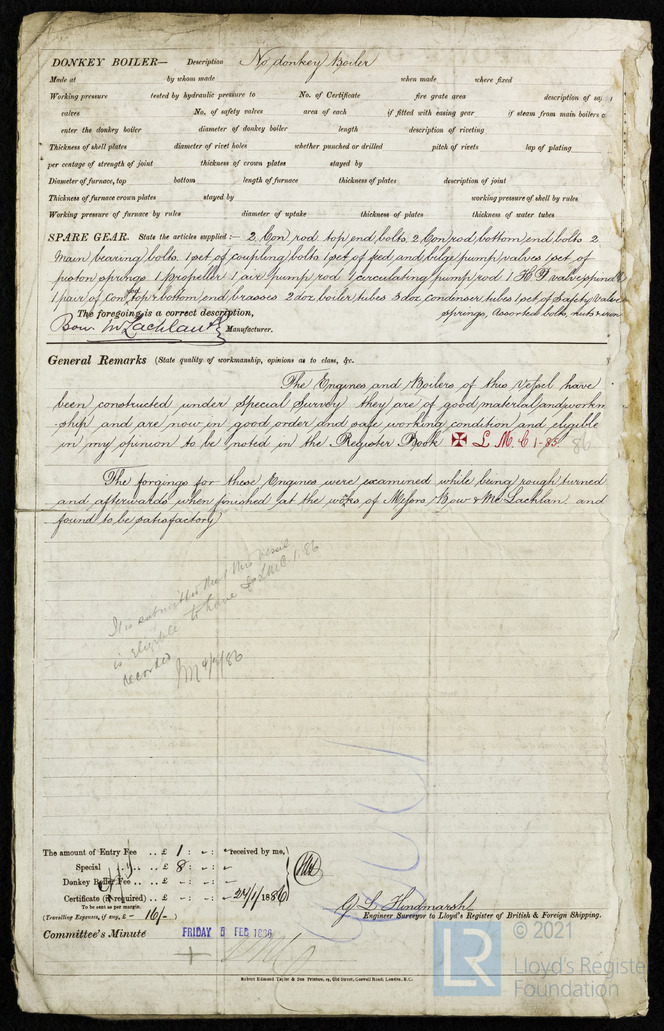 DONKEY BOILER— Description No donkey Boiler
Made at by whom made when made where fixed
Working pressure tested by hydraulic pressure to No. of Certificate fire grate area description of
valves No. of safety valves area of each if fitted with easing gear if steam from main boilers
enter the donkey boiler diameter of donkey boiler length description of riveting
Thickness of shell plates diameter of rivet holes whether punched or drilled pitch of rivets lap of plating
per centage of strength of joint thickness of crown plates stayed by
Diameter of furnace, top bottom length of furnace thickness of plates description of joint
Thickness of furnace crown plates stayed by working pressure of shell by rules
Working pressure of furnace by rules diameter of uptake thickness of plates thickness of water tubes
SPARE GEAR. State the articles supplied:— 2 Con rod top end bolts. 2 Con rod bottom end bolts 2
Main bearing bolts. 1 set of coupling bolts 1 set of feed and bilge pump valves 1 set of
piston springs 1 propeller 1 air pump rod 1 circulating pump rod 1 H.P valve spindle
1 pair of con rod top & bottom end brasses 2 doz boiler tubes 3 doz condenser tubes 1 set of Safety Valve
springs, Assorted bolts, nuts & iron
The foregoing is a correct description,
Bow McLachlan & Co Manufacturer.
General Remarks (State quality of workmanship, opinions as to class, &c.
The Engines and Boilers of this Vessel have
been constructed under Special Survey they are of good material and workm
-ship and are now in good order and safe working condition and eligible
in my opinion to be noted in the Register Book ✠ L.M.C 1-85 86
The forgings for these Engines were examined while being rough turned
and afterwards when finished at the works of Messrs Bow & McLachlan and
found to be satisfactory
It is submitted that this vessel
is eligible to have ✠ LMC 1.86
recorded
The amount of Entry Fee .. £ 1 : - : - received by me,
Special .. £ 8 : - : -
Donkey Boiler Fee .. £ - : - : -
Certificate (if required) .. £ - : - : - 27/1/1886
To be sent as per margin.
(Travelling Expenses, if any, £ - 16/- )
G L Hindmarsh
Engineer Surveyor to Lloyd's Register of British & Foreign Shipping.
Committee's Minute FRIDAY 5 FEB 1886
Robert Edmund Taylor & Son Printers, 19, Old Street, Goswell Road, London, E.C.
© 2021
LR
Lloyd's Register
Foundation